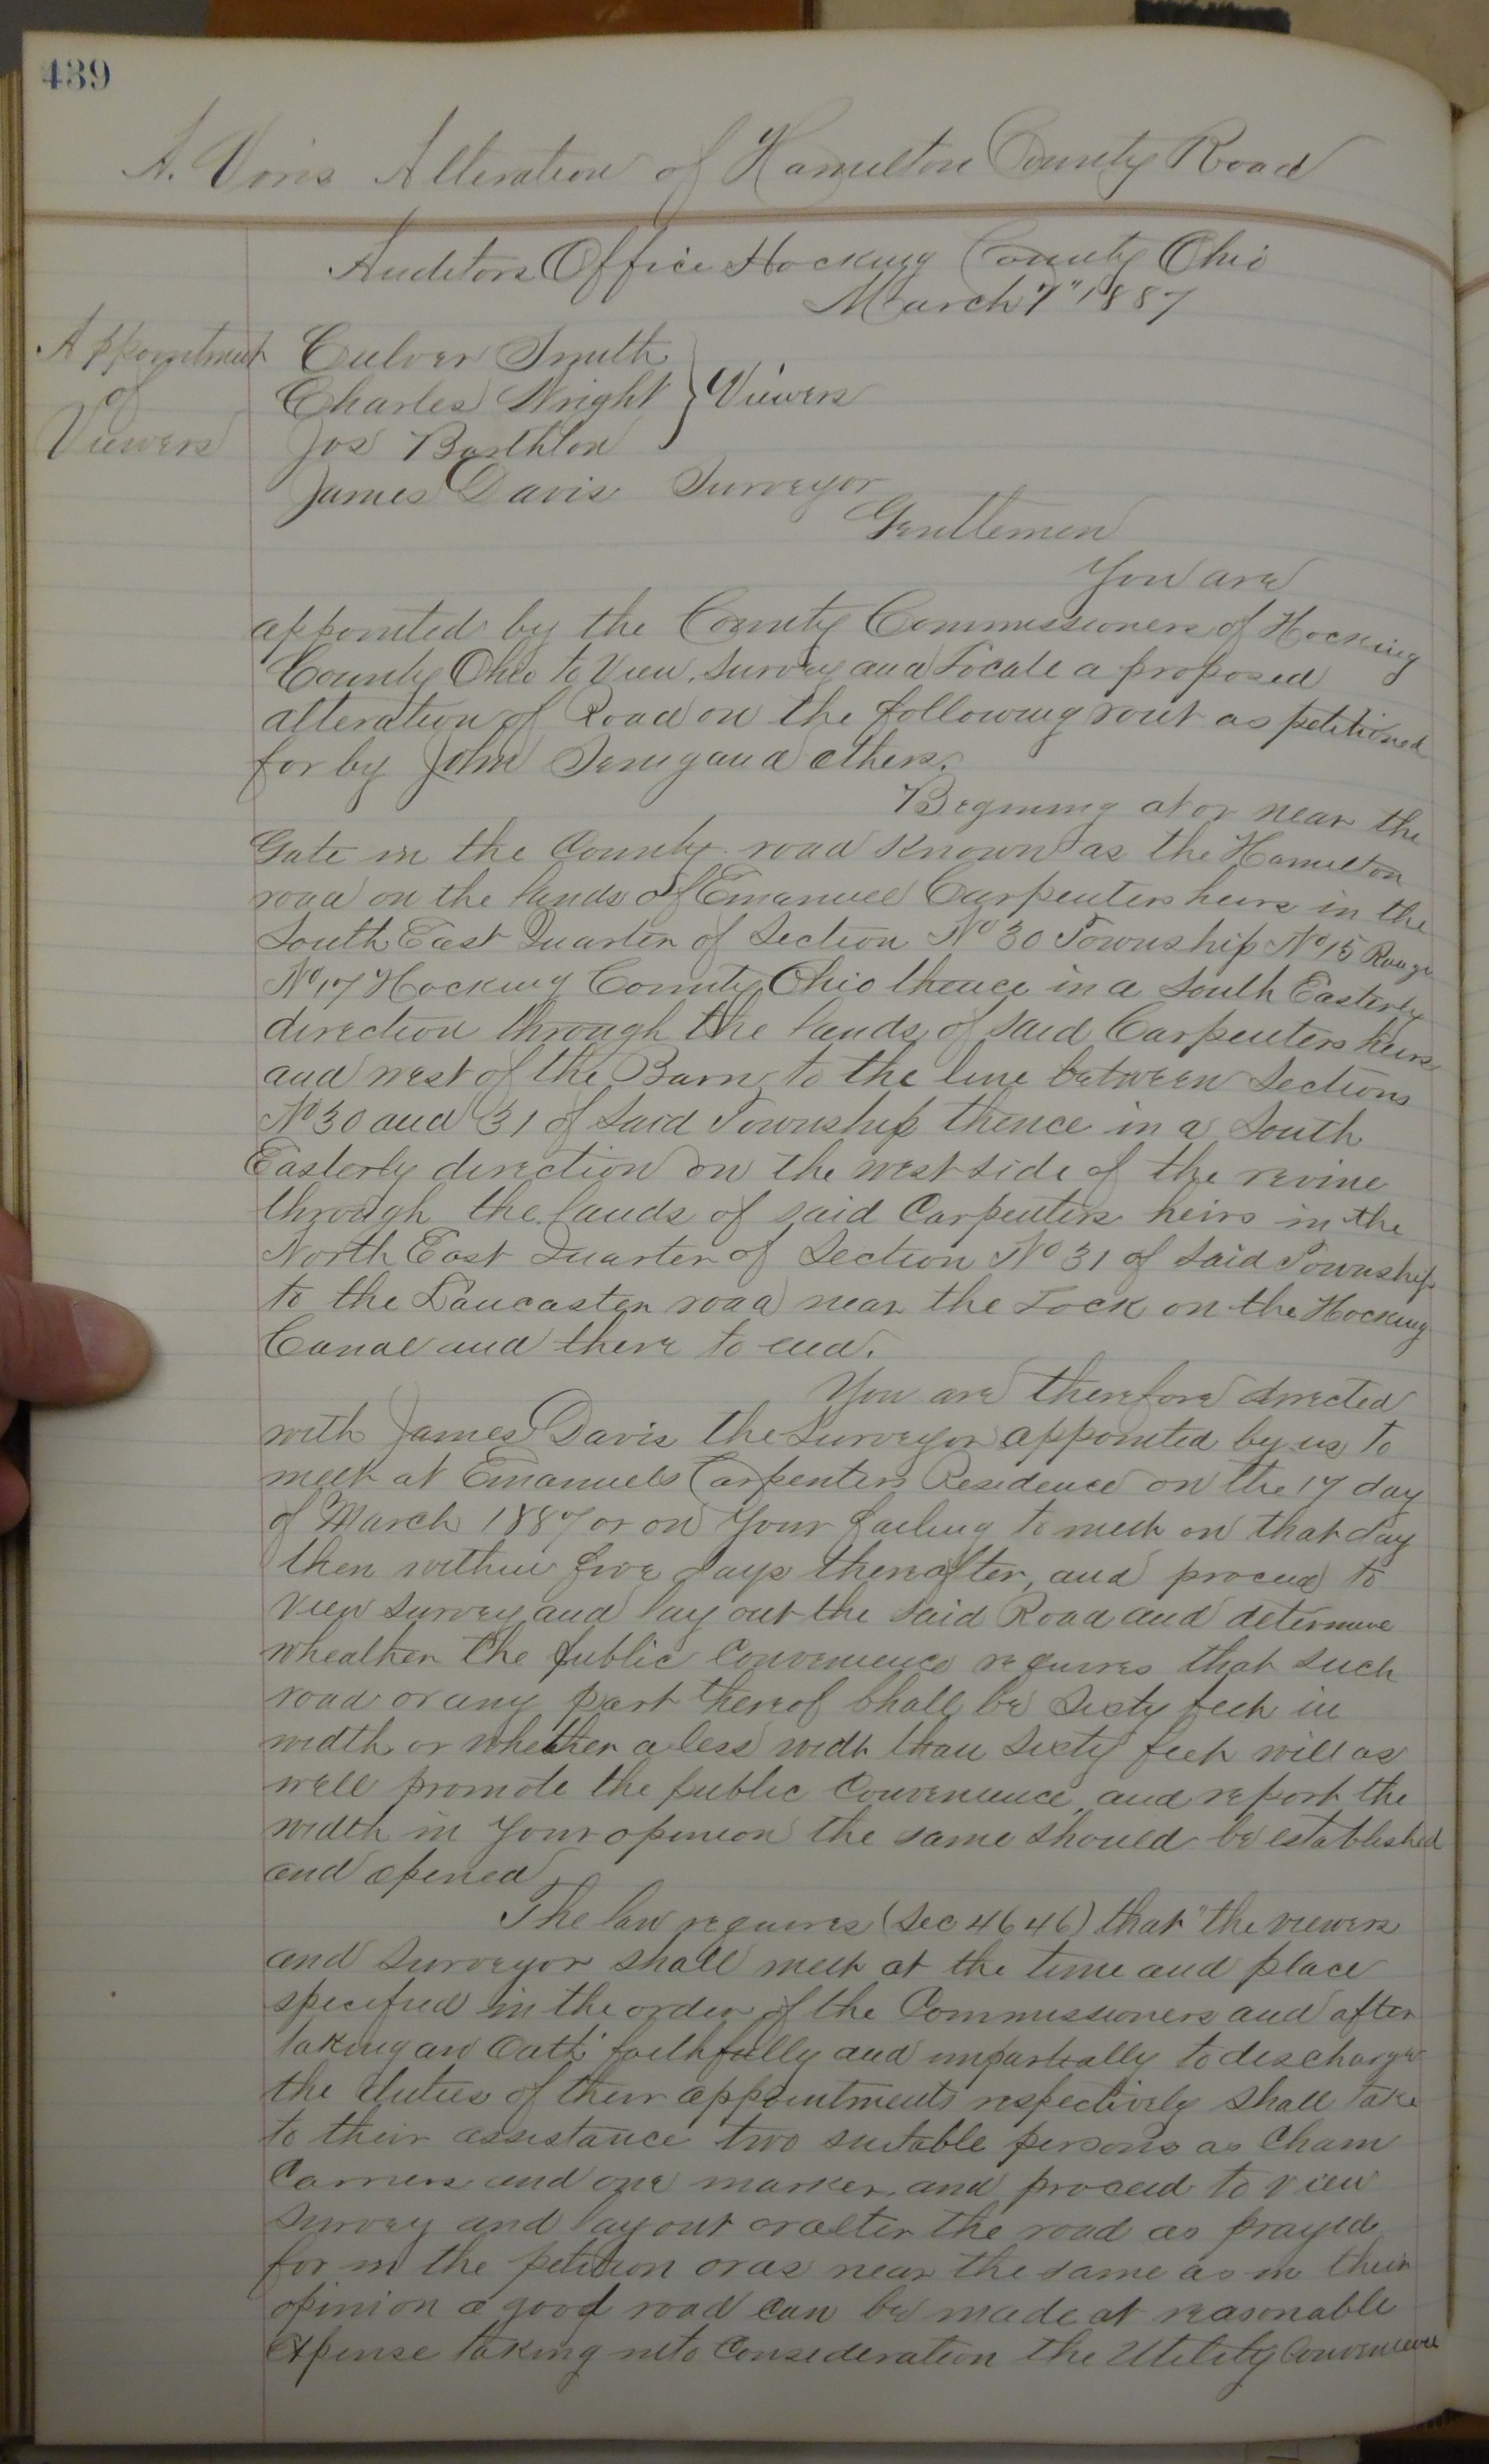 439
A. Voris Alteration of Hamilton County Road
Auditors Office Hocking County Ohio
March 7" 1887
Appointment
of
Viewers
Culver Smith
Charles Wright } Viewers
Jos Barthlon
James Davis Surveyor
Gentlemen
You are
appointed by the County Commissioners of Hocking
County Ohio to View, survey and Locate a proposed
alteration of Road on the following rout as petitioned
for by John and others.
Begining at or near the
Gate in the County road known as the Hamilton
road on the lands of Emanuel Carpenters heirs in the
South East Quarter of Section No 30 Township No 15 Range
No 17 Hocking County Ohio thence in a South Easterly
direction through the lands of said Carpenters heirs
and west of the Barn to the line between Sections
No 30 and 31 of Said Township thence in a South
Easterly direction on the west side of the revine
through the lands of said Carpenters heirs in the
North East Quarter of Section No 31 of Said Township
to the Lancaster road near the Lock on the Hocking
Canal and there to end.
You are therefore directed
with James Davis the Surveyor appointed by us to
meet at Emanuels Carpenters Residence on the 17 day
of March 1887 or on Your failing to meet on that day
then within five days thereafter, and proceed to
View survey and lay out the said Road and determine
wheather the public Convenience requires that such
road or any part thereof Shall be Sixty feet in
width or whether a less widt than Sixty feet will as
well promote the public Convenience and report the
width in Your opinion the same should be established
and opened
The law requires (Sec 4646) that "the viewers
and Surveyor shall meet at the time and place
specified in the order of the Commissioners and after
taking an Oath faithfully and impartially to discharge
the duties of their appointments respectively shall take
to their assistance two suitable persons as Chain
Carriers and one marker, and proceed to view
survey and lay out or alter the road as prayed
for in the petition or as near the same as in their
opinion a good road can be made at reasonable
expense taking into Consideration the Utility Convenience